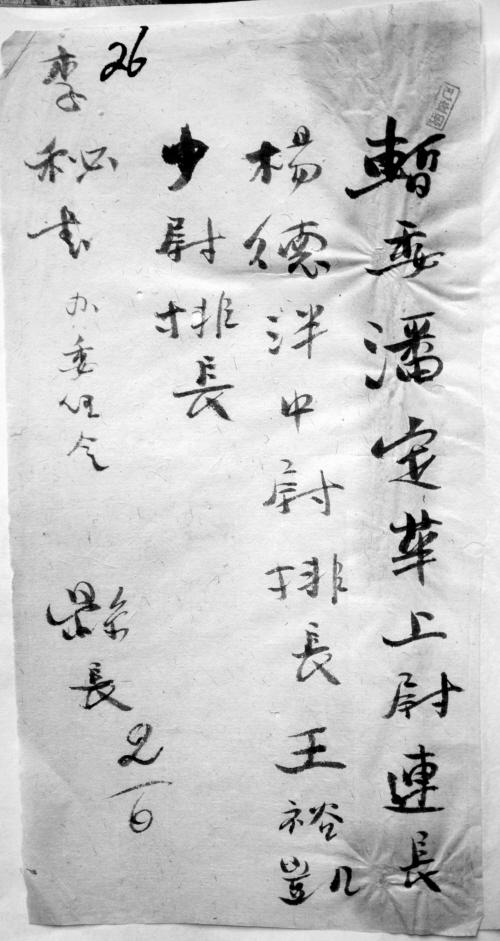 暫委潘定華上尉連長
楊德洋中尉排長王裕凱
少尉排長
26
李秘書 办委任令
縣長
2/6